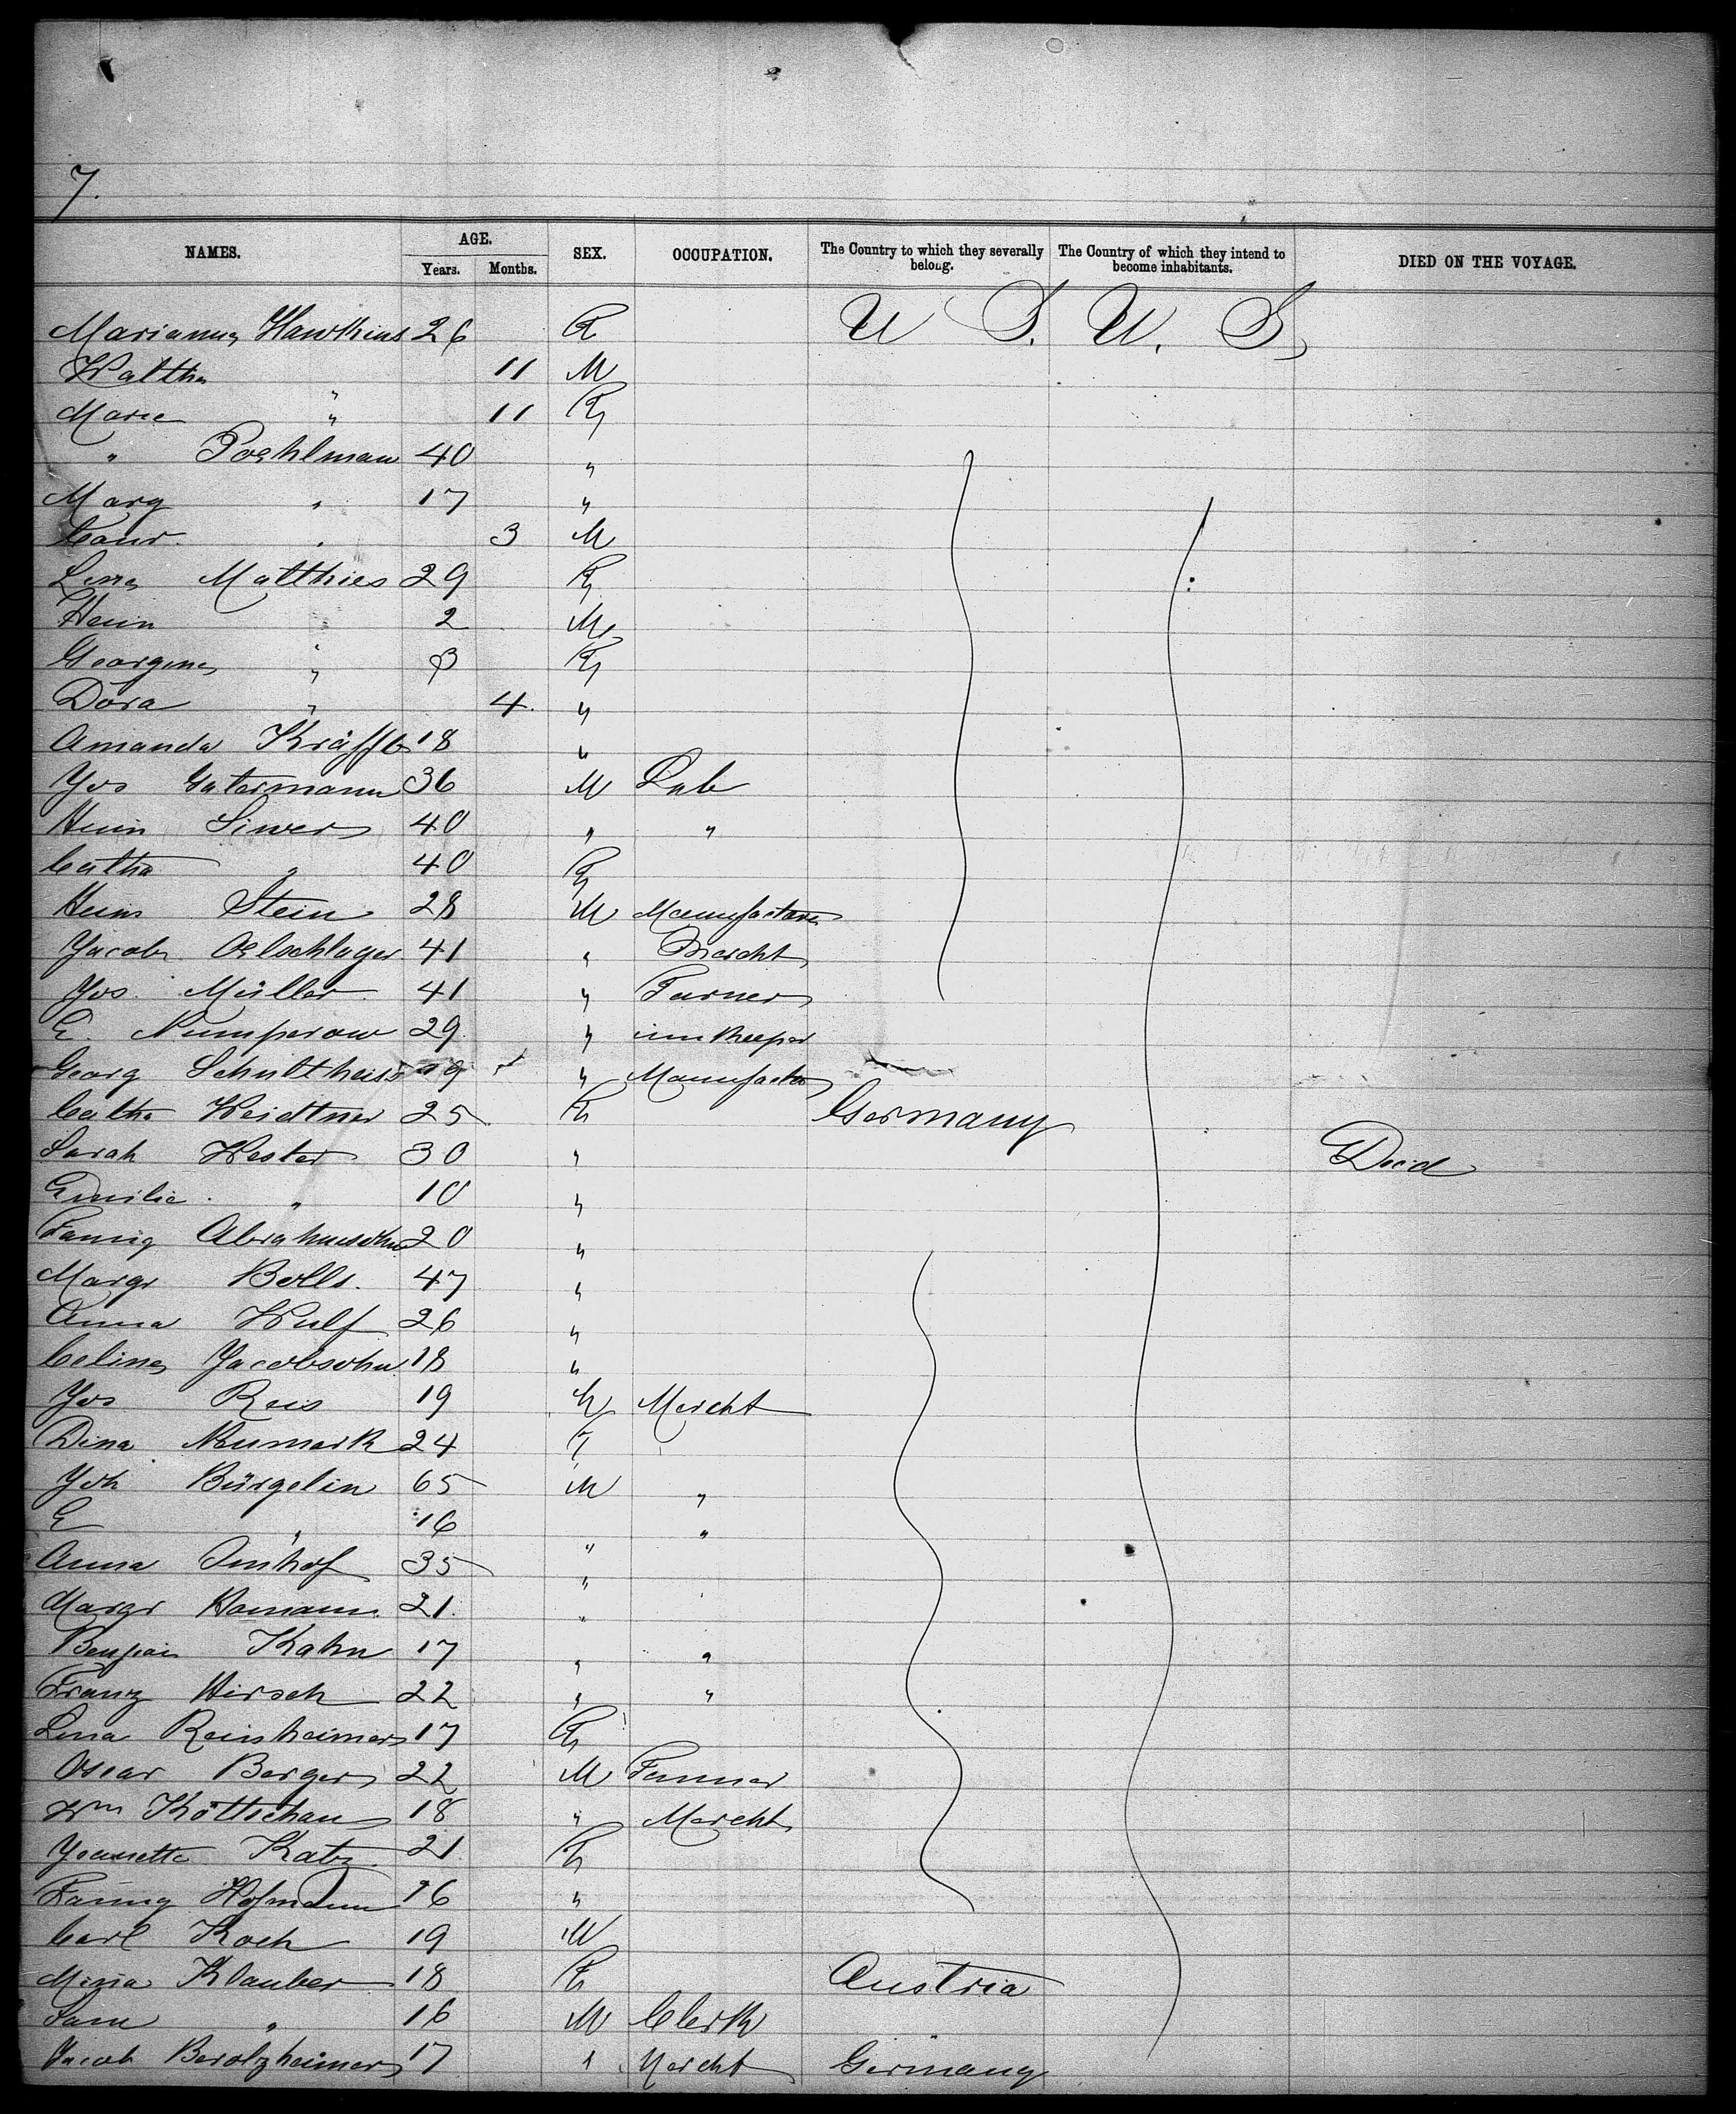 7.
NAMES. AGE. SEX. OCCUPATION. The Country to which they severally belong. The Country of which they intend to become inhabitants. DIED ON THE VOYAGE.
Years. Months.
Marianna Hawkins 26 F U S. U. S.
Walther " 11 M
Marie " 11 F
" Poehlman 40 "
Marg " 17 "
Conr. " 3 M
Lena Matthies 29 F
Hein " 2 M
Georgine " 3 F
Dora " 4. "
Amanda 18 "
Jos Gatermann 36 M Lab
Hein Siwers 40 " "
Catha " 40 F
Hein Stein 28 M Manufacturer
Jacob Oelschlager 41 " Mercht
Jos. Müller 41 " Turner
E. Numperow 29 " innkeeper
Georg Schultheiss 19 " Manufactu
Catha Weidtner 25 F Germany
Sarah Wester 30 " Deid
Emilie " 10 "
Fanny Abrahmsohn 20 "
Margr Bolls. 47 "
Anna Wulf 26 "
Celine Jacobsohn 18 "
Jos Reis 19 M Mercht
Dina Neumark 24 F
Joh Bürgelin 65 M "
E " 16 " "
Anna Imhof 35 "
Margr Hamann 21. "
Benjain Kahn 17 " "
Franz Hirsch 22 " "
Lena Reinsheimer 17 F
Oscar Berger 22 M Farmer
Wm Köttschau 18 " Mercht
Jeanette Katz 21 F
Fanny Hofmann 16 "
Carl Koch 19 M
Minia Klauber 18 F Austria
Sam " 16 M Clerk
Jacob Berolzheimer 17 " Mercht Germany